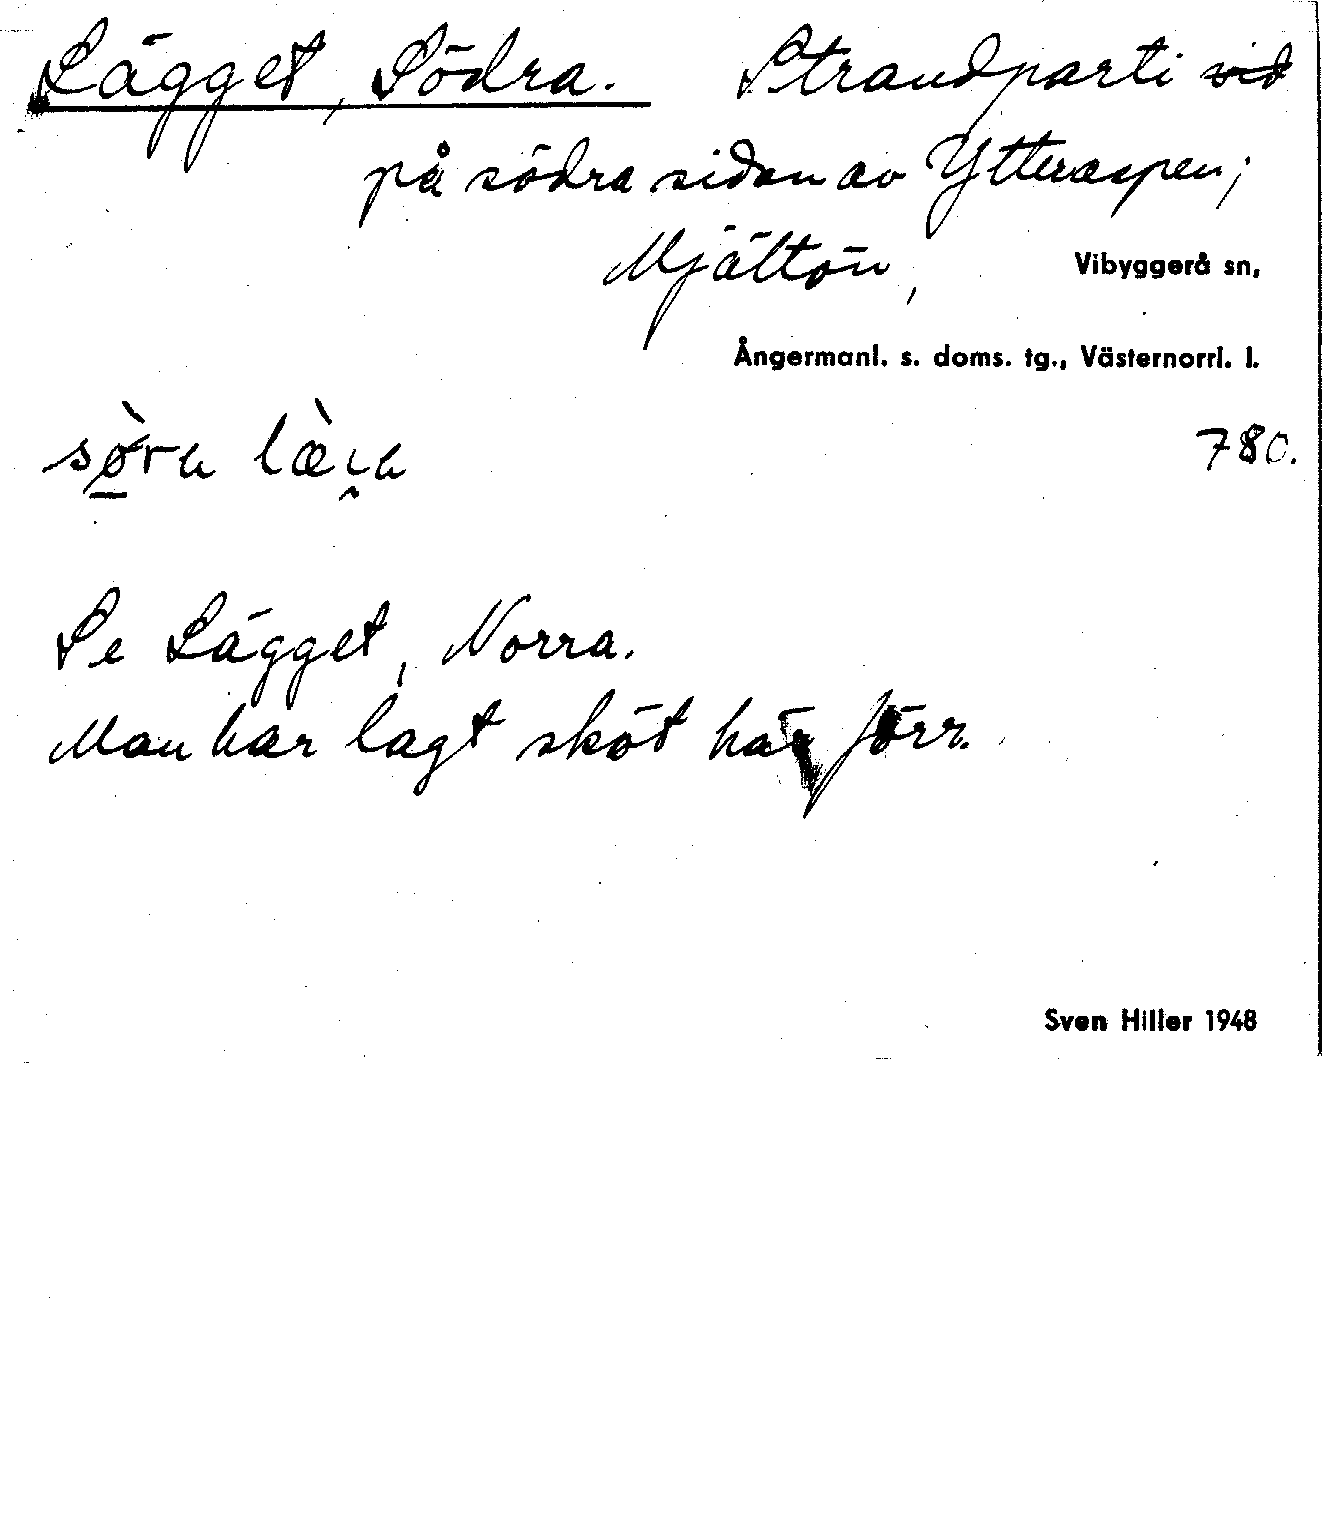 Lägget, Södra. Strandparti vid
på södra sidan av Ytteraspen;
Mjältön, Vibyggerå sn,
Ångermanl. s. doms. tg., Västernorrl. l.
780.
Se Lägget, Norra.
Man har lagt sköt här förr.
Sven Hiller 1948